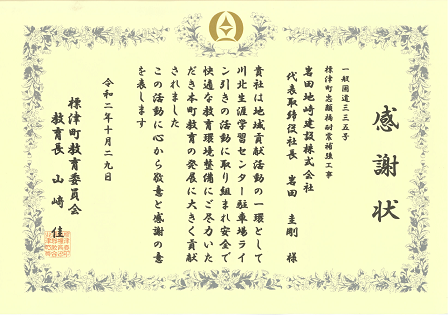 感謝状
一般国道三三五号
標津町忠類橋耐震補強工事
岩田地崎建設株式会社
代表取締役社長 岩田 圭剛 様
貴社は地域貢献活動の一環として
川北生涯学習センター駐車場ライ
ン引きの活動に取り組まれ安全で
快適な教育環境整備にご尽力いた
だき本町教育の発展に大きく貢献
されました
この活動に心から敬意と感謝の意
を表します
令和二年十月二九日
標津町教育委員会
教育長 山﨑 佳